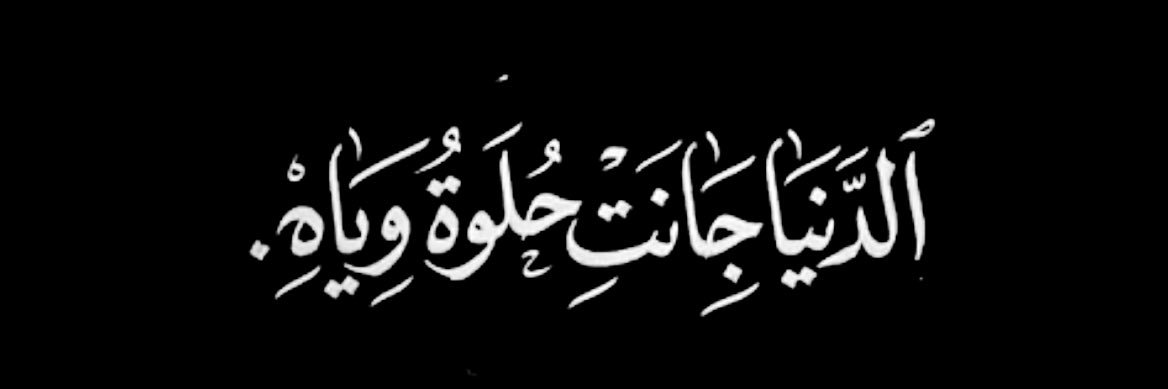 ٱلدَّنيَا جَانَتِ حُلَوةُ وِيَاهِ.